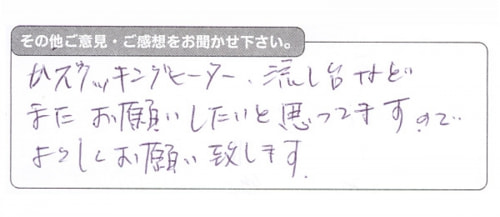 その他ご意見・ご感想をお聞かせ下さい。
ガスクッキングヒーター、流し台など
また お願いしたいと思ってますので
よろしくお願い致します.